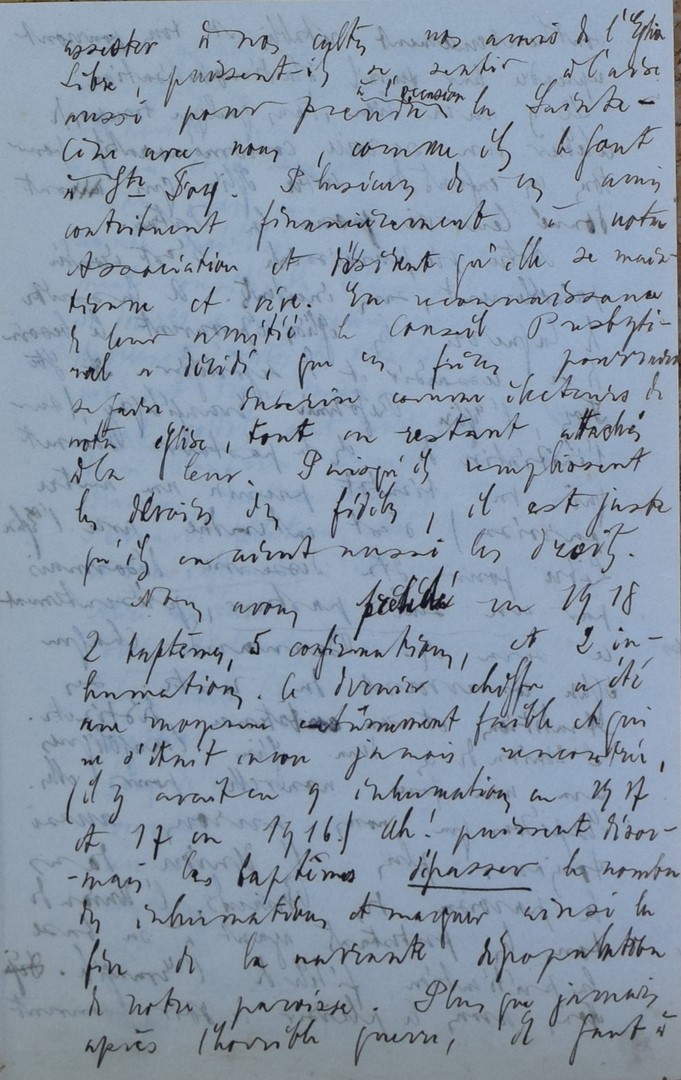 assister à nos cultes nos amis de l'Eglise
Libre, puissent-ils se sentir à l'aise
aussi pour prendre à l'occasion la Sainte-
Cène avec nous, comme ils le font
à Ste Foy. Plusieurs de ces amis
contribuent financièrement à notre
Association et désirent qu'elle se main-
tienne et vive. En reconnaissance
de leur amitié le Conseil Presbyté-
ral a décidé, que ces frères pourraient
se faire inscrire comme électeurs de
notre église, tout en restant attachés
à la leur. Puisqu'ils remplissent
les devoirs des fidèles, il est juste
qu'ils en aient aussi les droits.
Nous avons en 1918
2 baptêmes, 5 confirmations, et 2 in-
humations. Ce dernier chiffre a été
une moyenne extrêmement faible et qui
ne s'était encore jamais rencontrée,
(il y avait eu 9 inhumations en 1917
et 17 en 1916.) Ah! puissent désor-
-mais les baptêmes dépasser le nombre
des inhumations et marquer ainsi la
fin de la navrante dépopulation
de notre paroisse. Plus que jamais
après l'horrible guerre, il faut à